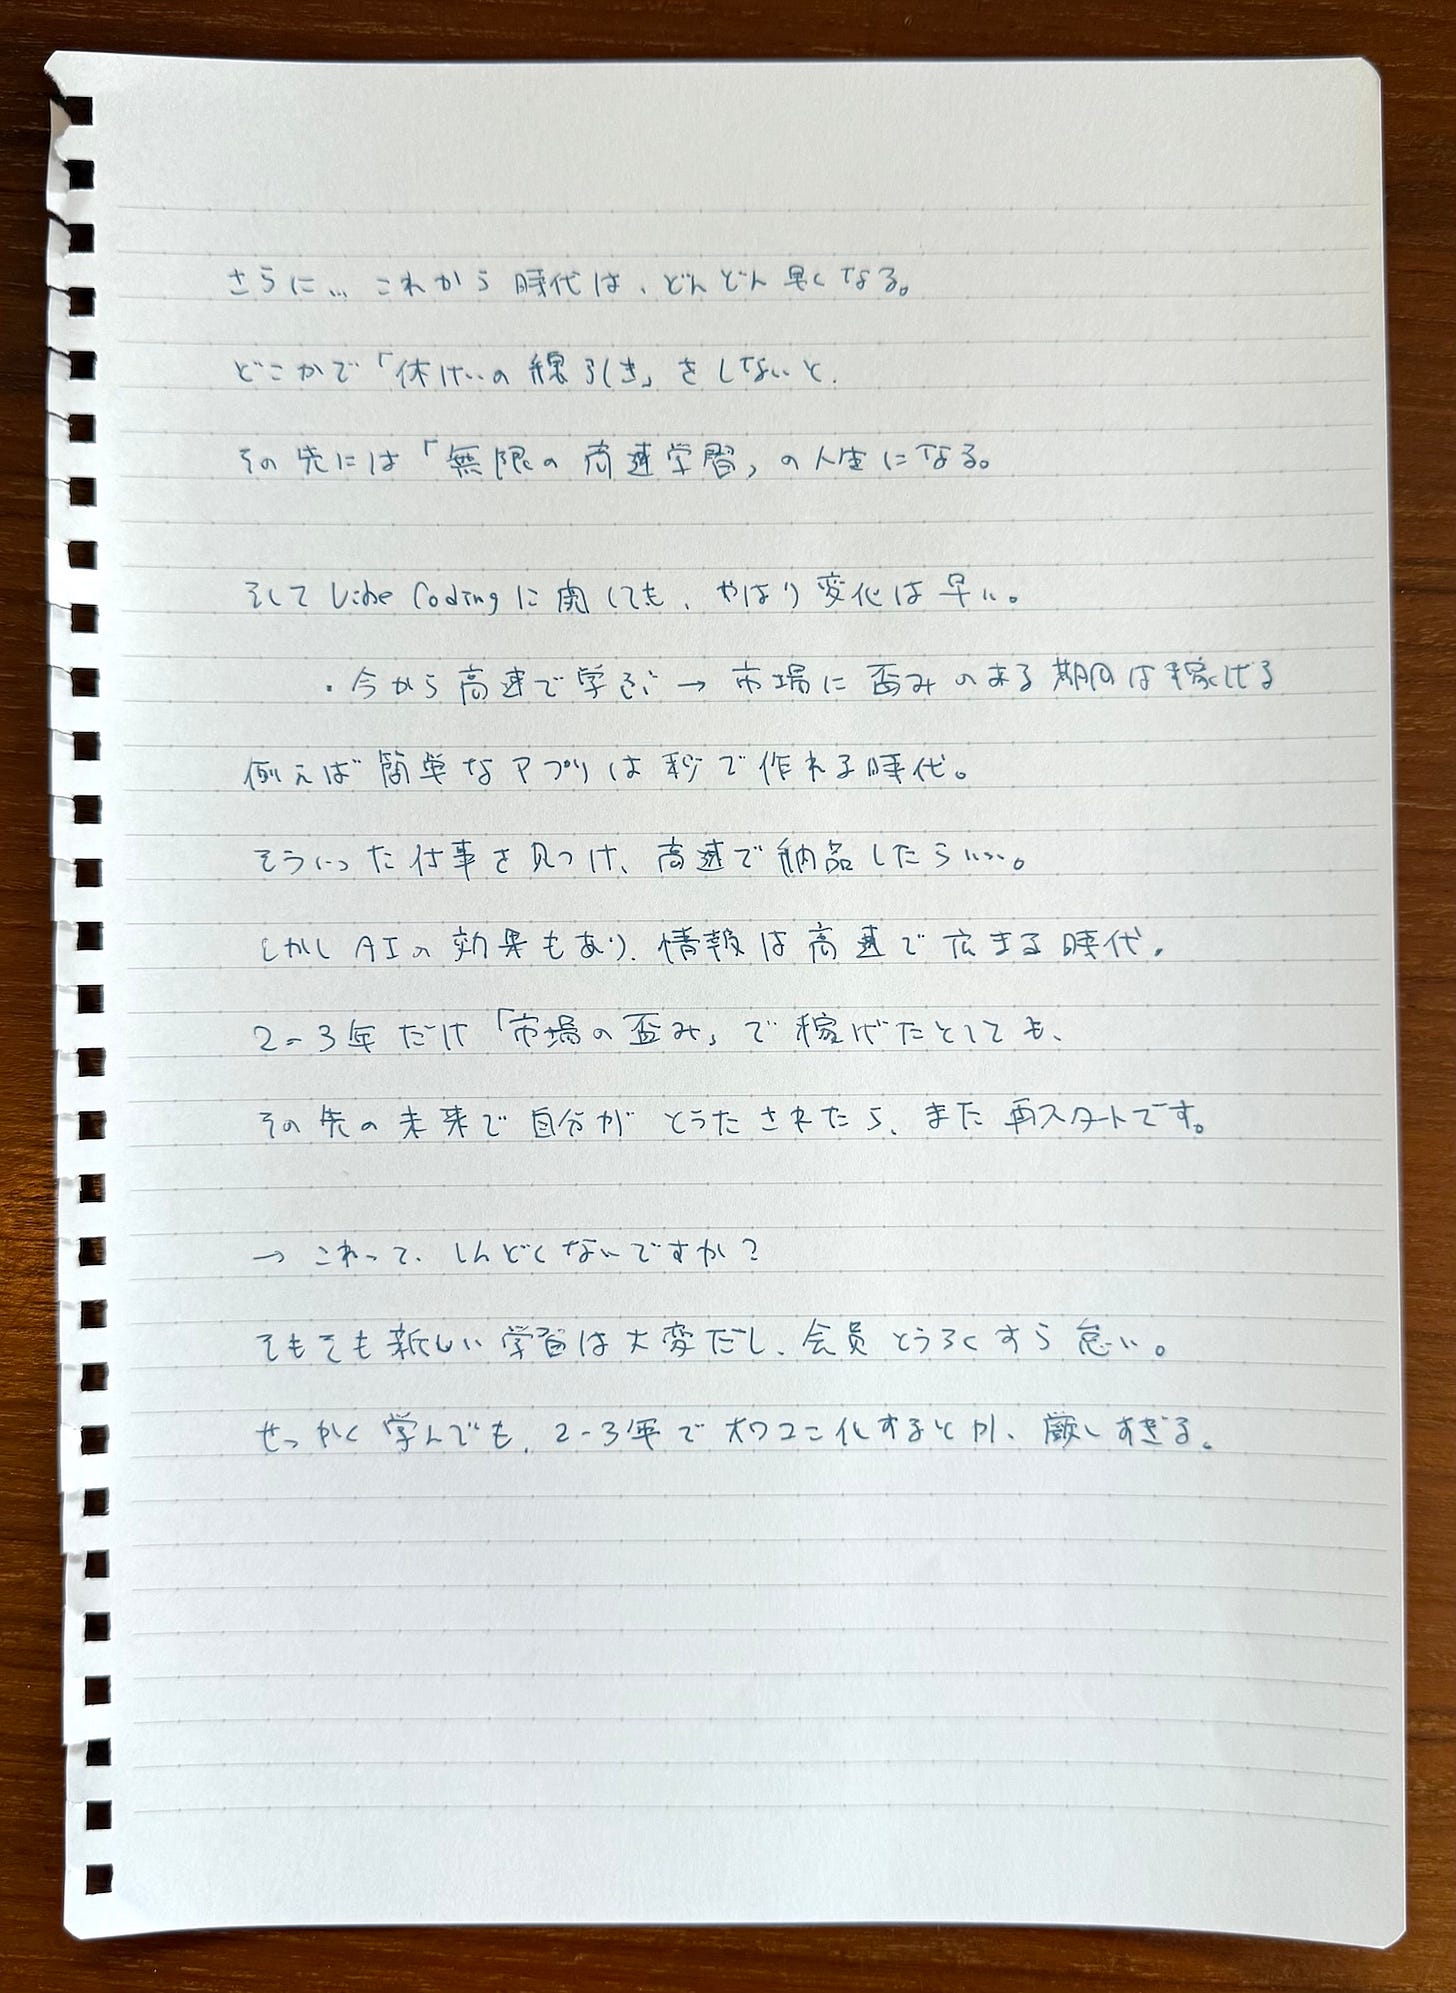 さらに... これから時代は、どんどん早くなる。
どこかで「休けいの線引き」をしないと、
その先には「無限の高速学習」の人生になる。
そして Vibe Coding に関しても、やはり変化は早い。
・今から高速で学ぶ → 市場に歪みのある期間は稼げる
例えば簡単なアプリは秒で作れる時代。
そういった仕事を見つけ、高速で納品したらいい。
しかしAIの効果もあり、情報は高速で広まる時代。
2-3年だけ「市場の歪み」で稼げたとしても、
その先の未来で自分がとうたされたら、また再スタートです。
→ これって、しんどくないですか？
そもそも新しい学習は大変だし、会員とうろくすら怠い。
せっかく学んでも、2-3年でオワコン化するとか、厳しすぎる。